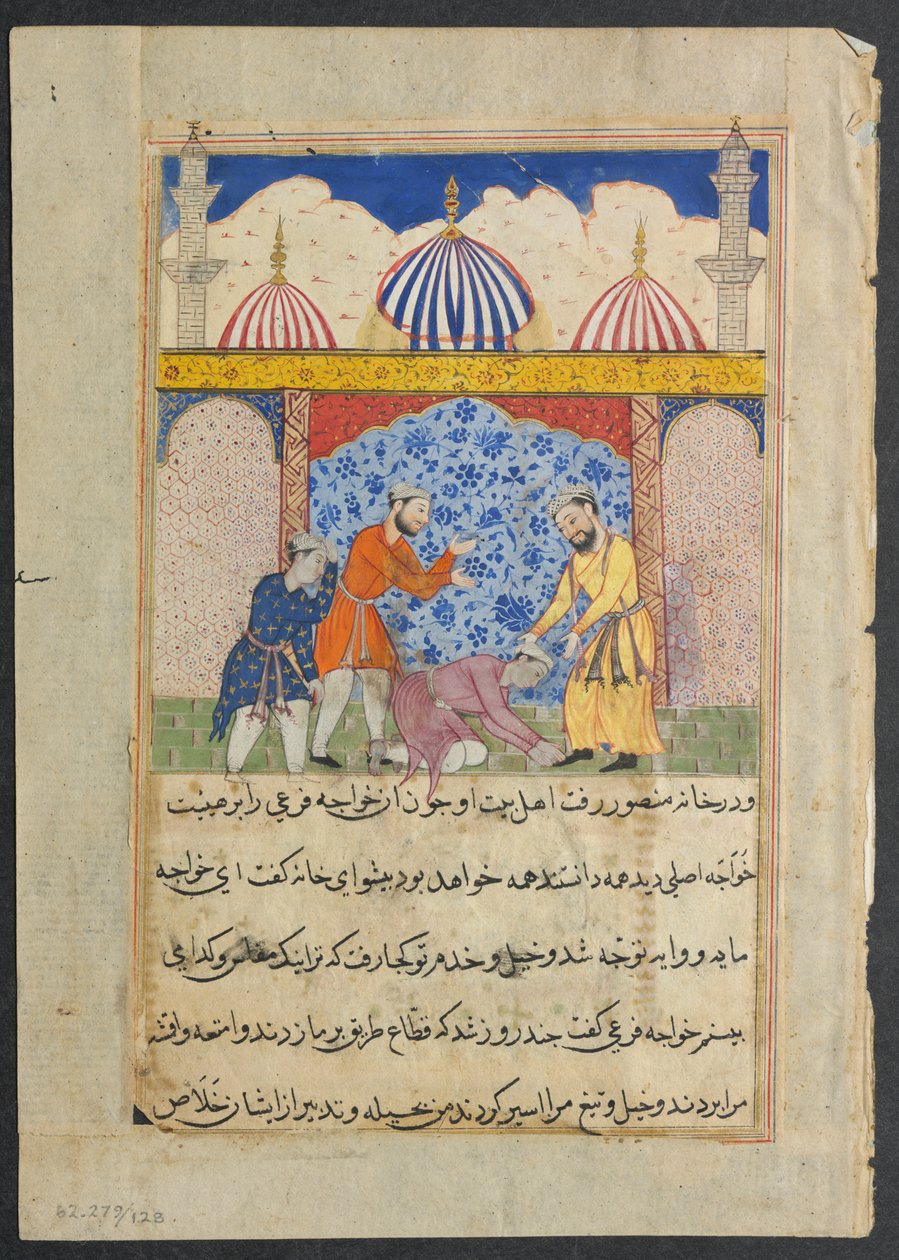 ودرخانه منصور رفت اهل بیت او جون ان خواجه فرعی را بر هیئت
خَوَاجَه اصلی دید همه دانستند همه خواهد بود بیشوای خانه کفت ای خواجه
مایه و وایه توجه شد و خیل و خدم تو کجا رفت که ترا اینک مفلس و کدا می
بینم خواجه فرعی کفت جند روز شد که قطّاع طریق بر ما زدند و امتعه واقشه
مرا بردند و خیل و تیغ مرا اسیر کردند من بحیله و تدبیر از ایشان خَلَاص
62.279/128.